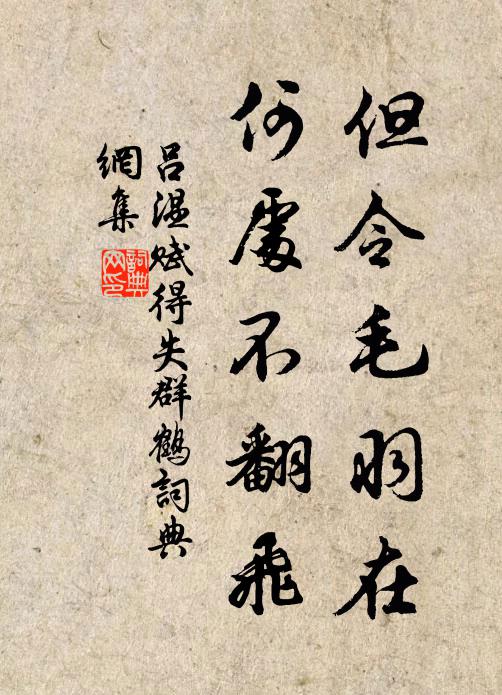 但令毛羽在
何處不翻飛
呂溫賦得失群鶴詞典
網集
詞典
网印